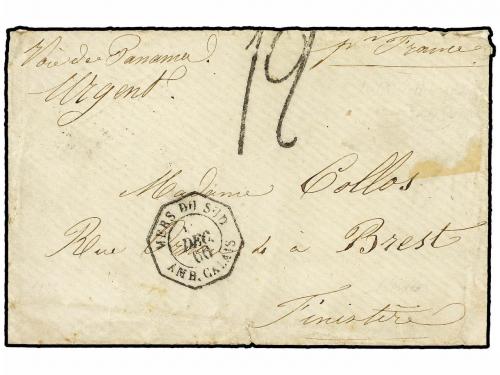 Voie de Panama. pr France
Urgent.
12
Madame Collos
MERS DU SUD
DEC.
AMB. CALAIS
Rue 4 à Brest
Finistère